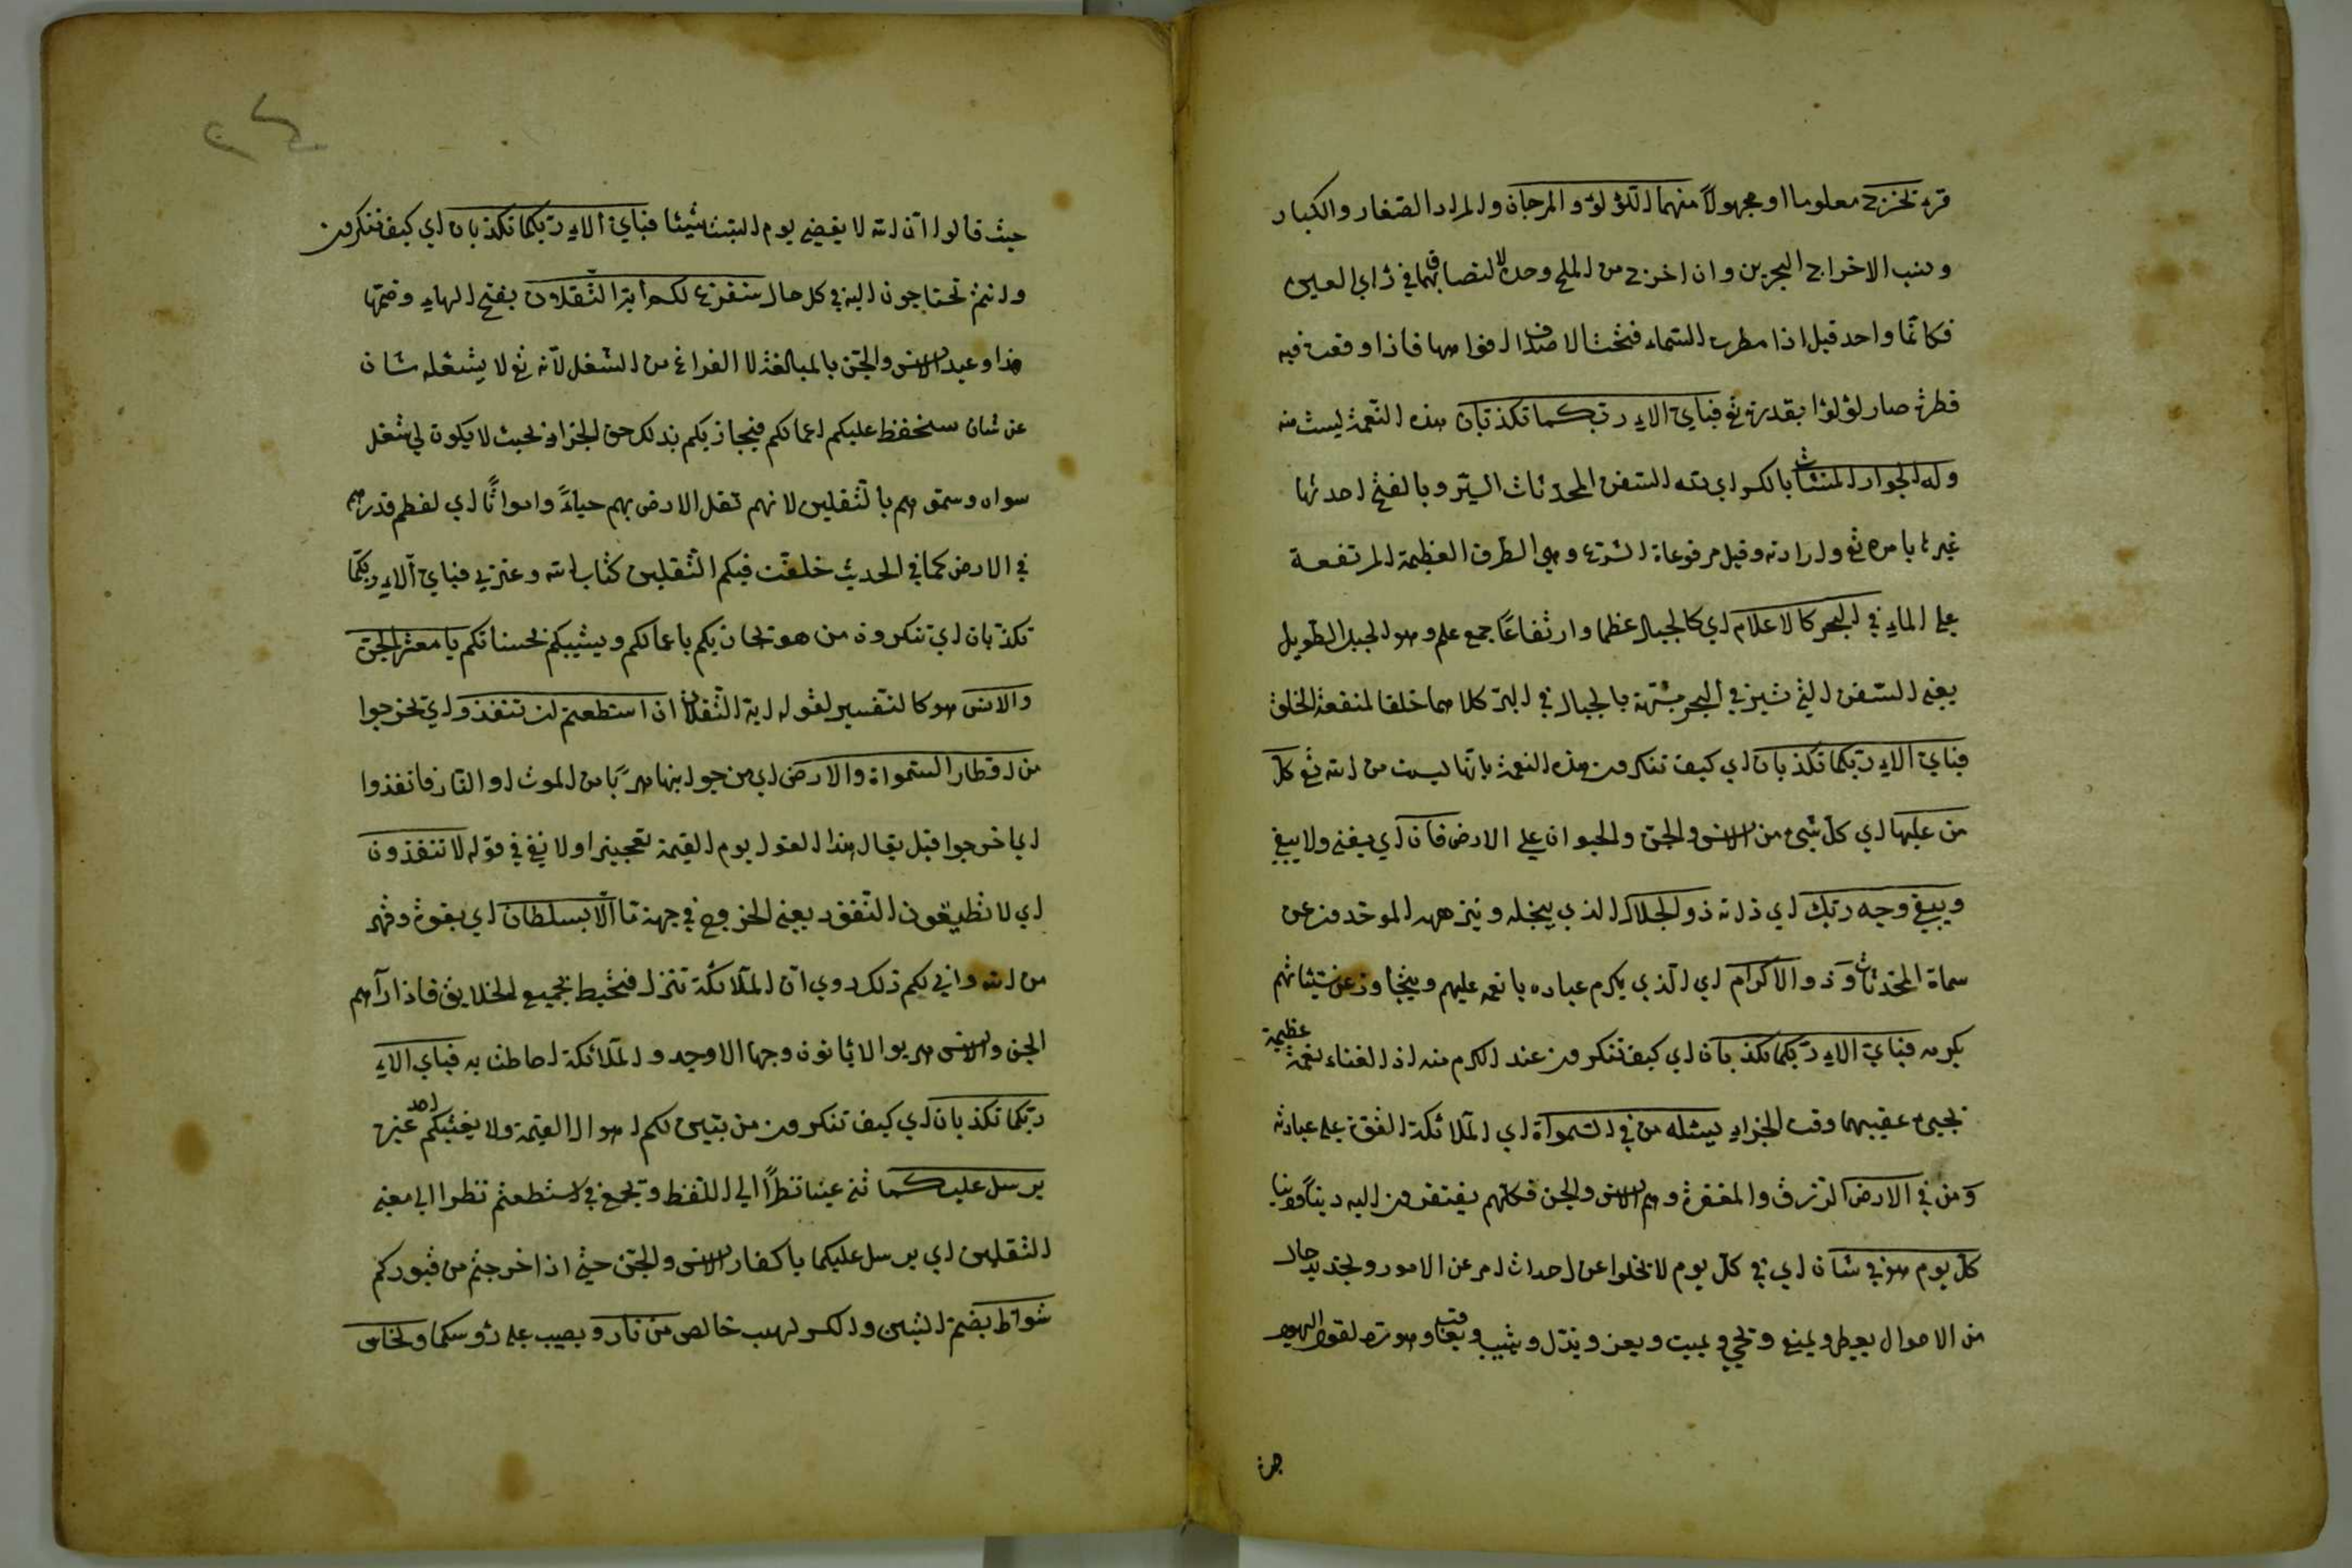 قرئ يخرج معلوما او مجهولاً منهما اللؤلؤ والمرجان والمراد الصغار والكبار
ونسب الاخراج البحرين وان اخرج من الملح وحده لالتصاقهما في رأي العين
فكانّما واحد قيل اذا مطرت السماء فتحت الاصداف افواهها فاذا وقعت فيه
قطرة صار لؤلؤا بقدرته تع فباي الاء ربكما تكذبان هذه النعمة ليست منه
وله الجوار المنشئات بالكسر اي لله السفن المحدثات السير وبالفتح احدثها
غيرها بامره تع وارادته وقيل مرفوعات الشرع وهي الطرف العظيمة المرتفعة
على الماء في البحر كالاعلام اي كالجبال عظما وارتفاعًا جمع علم وهو الجبل الطويل
يعني السفن التي تسير في البحر مشبهة بالجبال في البر كلاهما خلقا لمنفعة الخلق
فباي الاء ربكما تكذبان اي كيف تنكرون هذه النعمة بانها ليست من الله تع كلّ
من عليها اي كل شيء من الانس والجن والحيوان على الارض فان اي يفنى ولا يبقى
ويبقى وجه ربك اي ذاته ذو الجلال الذي يبجله وينزهه الموحدون عن
سماة المحدثات وذو الاكرام اي الذي يكرم عباده بانعمه عليهم ويتجاوز عن سيئاتهم
بكرمه فباي الاء ربكما تكذبان اي كيف تنكرون عند الكرم منه اذ الغناء نعمة عظيمة
تجيء عقيبهما وقت الجزاء يسئله من في السموات اي الملائكة القوة على عبادته
ومن في الارض الرزق والمغفرة وهم الانس والجن فكلهم يفتقرون اليه دينًا ودنيا
كل يوم هو في شان اي في كل يوم لا يخلوا عن احداث امر عن الامور وتجديد حال
من الاحوال يعطي ويمنع ويحيي ويميت ويعز ويذل ويثيب ويعاقب وهو رد لقول اليهود
حيث قالوا ان الله لا يقضي يوم السبت شيئا فباي الاء ربكما تكذبان اي كيف تنكرون
وانتم تحتاجون اليه في كل حال سنفرغ لكم ايه الثقلان بفتح الهاء وضمها
هذا وعيد الانس والجن بالمبالغة لا الفراغ من الشغل لانه تع لا يشغله شان
عن شان سنحفظ عليكم اعمالكم فيجازيكم بذلك حق الجزاء بحيث لا يكون لي شغل
سواه وسمي هم بالثقلين لانهم ثقل الارض بهم حياءً وامواتًا اي لعظم قدرهم
في الارض كما في الحديث خلفت فيكم الثقلين كتاب الله وعترتي فباي آلاء ربكما
تكذبان اي تنكرون من هو يجازيكم باعمالكم ويثيبكم بحسناتكم يا معشر الجن
والانس هو كالتفسير لقوله ايه الثقلان ان استطعتم ان تنفذوا اي تخرجوا
من اقطار السموات والارض اي من جوانبها هربًا من الموت او النار فانفذوا
اي اخرجوا قيل يقال هذا القول يوم القيمة تعجيزا ولا نفي في قوله لا تنفذون
اي لا تطيقون النفوذ يعني الخروج في جهة ما الا بسلطان اي بقوة وقهر
من الله وانى لكم ذلك روي ان الملائكة تنزل فتحيط بجميع الخلايق فاذا رآهم
الجن والانس هربوا لا يأتون وجها الا وجد والملائكة احاطنا به فباي الاء
ربكما تكذبان اي كيف تنكرون من يبين لكم اهوال القيمة ولا يغيثكم احد غيره
يرسل عليكما ثنى عينا نظرًا الى اللفظ وجمع في استطعتم نظرا الى معنى
الثقلين اي يرسل عليكما يا كفار الانس والجن حتى اذا خرجتم من قبوركم
شواظ بضم الشين والكسر لهب خالص من نار ويصيب على رؤسكما ونحاس